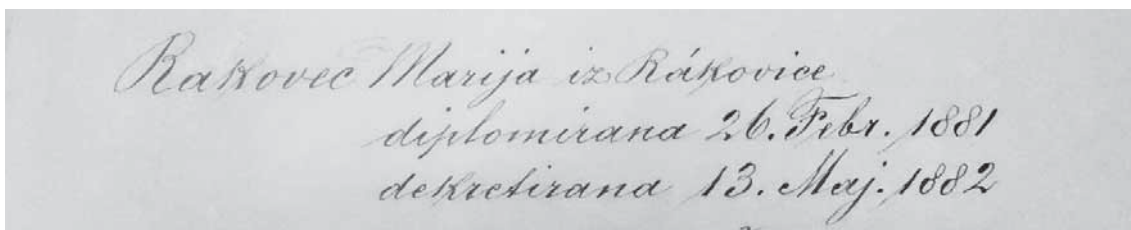 Rakovec Marija iz Rákovice
diplomirana 26. Febr. 1881
dekretirana 13. Maj. 1882